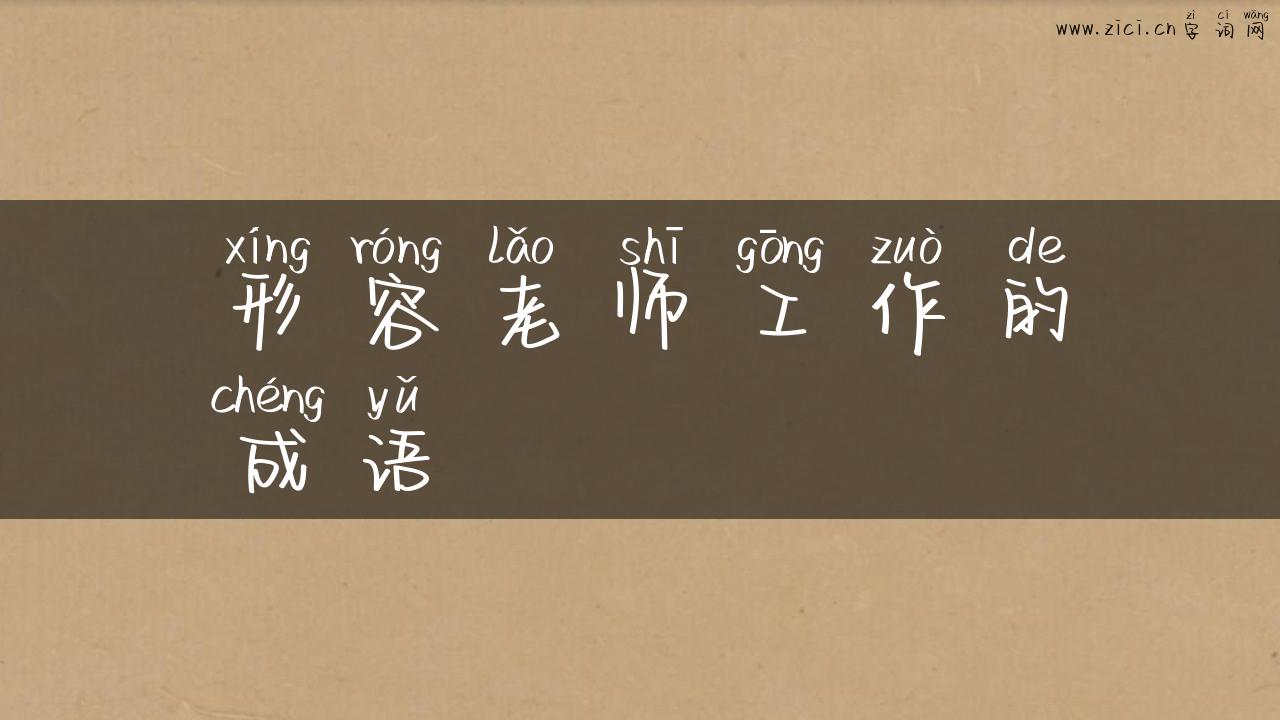 zì cí wǎng
www.zici.cn 字词网
xíng róng lǎo shī gōng zuò de
形容老师工作的
chéng yǔ
成语